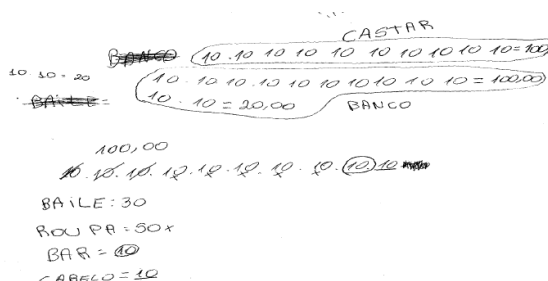 CASTAR
BANCO 10.10 10 10 10 10 10 10 10 10=100
10.10=20 10.10 10.10.10 10 10 10 10 10=100,00
BAILE= 10.10=20,00 BANCO
100,00
10.10.10.10.10.10.10.10.10 10
BAILE:30
ROUPA=50x
BAR=10
CABELO=10